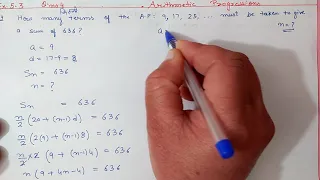 Ex 5.3 Q no 4 Arithmetic Progressions
How many terms of the AP: 9, 17, 25, ... must be taken to give
a sum of 636? a n = ?
a = 9
d = 17-9 = 8
Sn = 636
n = ?
Sn = 636
n/2 (2a + (n-1)d) = 636
n/2 (2(9) + (n-1)8) = 636
n/2 x 2 (9 + (n-1)4) = 636
n (9 + 4n-4) = 636